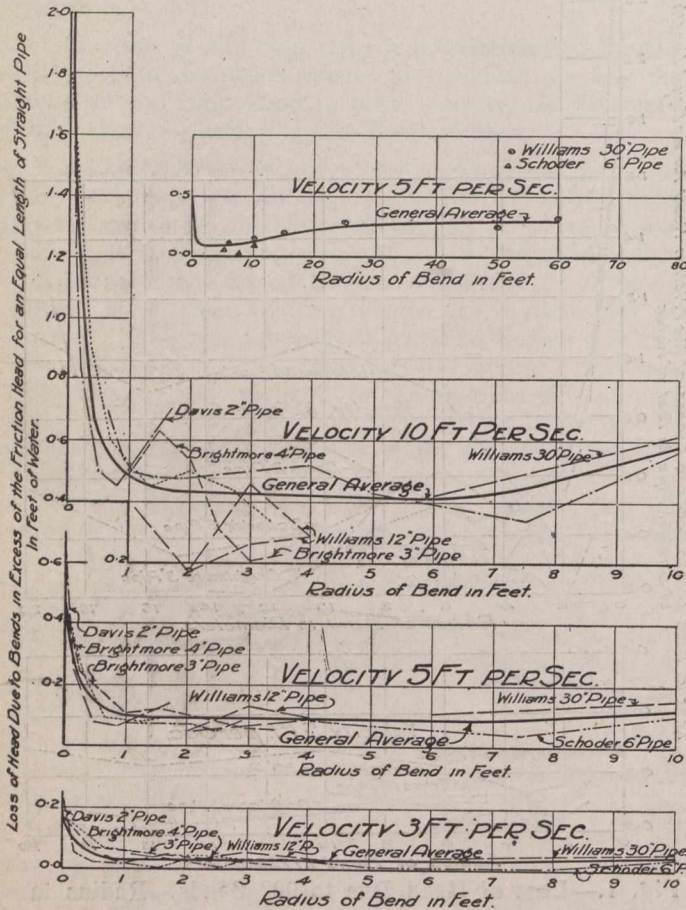 Loss of Head Due to Bends in Excess of the Friction Head for an Equal Length of Straight Pipe
In Feet of Water.
2·0
1·8
1·6
1·4
1·2
1·0
0·8
0·6
0·4
0·2
Williams 30" Pipe
Schoder 6" Pipe
VELOCITY 5 FT PER SEC.
General Average
0·5
0·0
0 10 20 30 40 50 60 70 80
Radius of Bend in Feet.
Davis 2" Pipe
VELOCITY 10 FT PER SEC.
Brightmore 4" Pipe
Williams 30" Pipe
General Average
Williams 12" Pipe
Brightmore 3" Pipe
1 2 3 4 5 6 7 8 9 10
Radius of Bend in Feet.
0·6
0·4
0·2
0
Davis 2" Pipe
Brightmore 4" Pipe
Brightmore 3" Pipe
VELOCITY 5 FT PER SEC.
Williams 12" Pipe
Williams 30" Pipe
General Average
Schoder 6" Pipe
0 1 2 3 4 5 6 7 8 9 10
Radius of Bend in Feet.
0·2
0·0
Davis 2" Pipe
VELOCITY 3 FT PER SEC.
Brightmore 4" Pipe
3" Pipe
Williams 12" P.
General Average
Williams 30" Pipe
Schoder 6" P.
0 1 2 3 4 5 6 7 8 9 10
Radius of Bend in Feet.